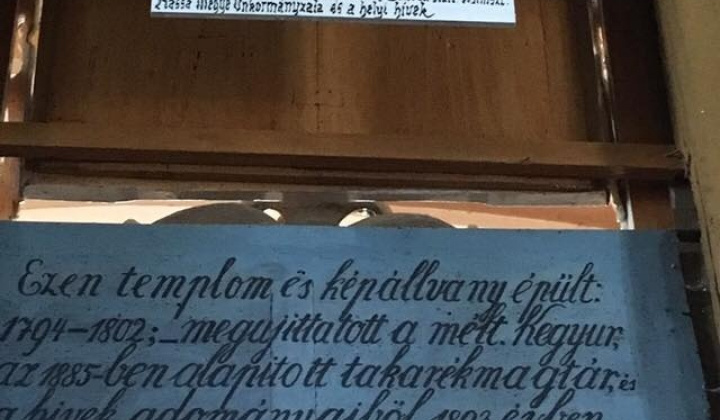 Megye Önkormányzata és a helyi hívek
Ezen templom és képállvany épült:
1794–1802; megujittatott a mélt. kegyur,
az 1885-ben alapitott takarékmagtár, és
a hivek adományaiból 1893 évben